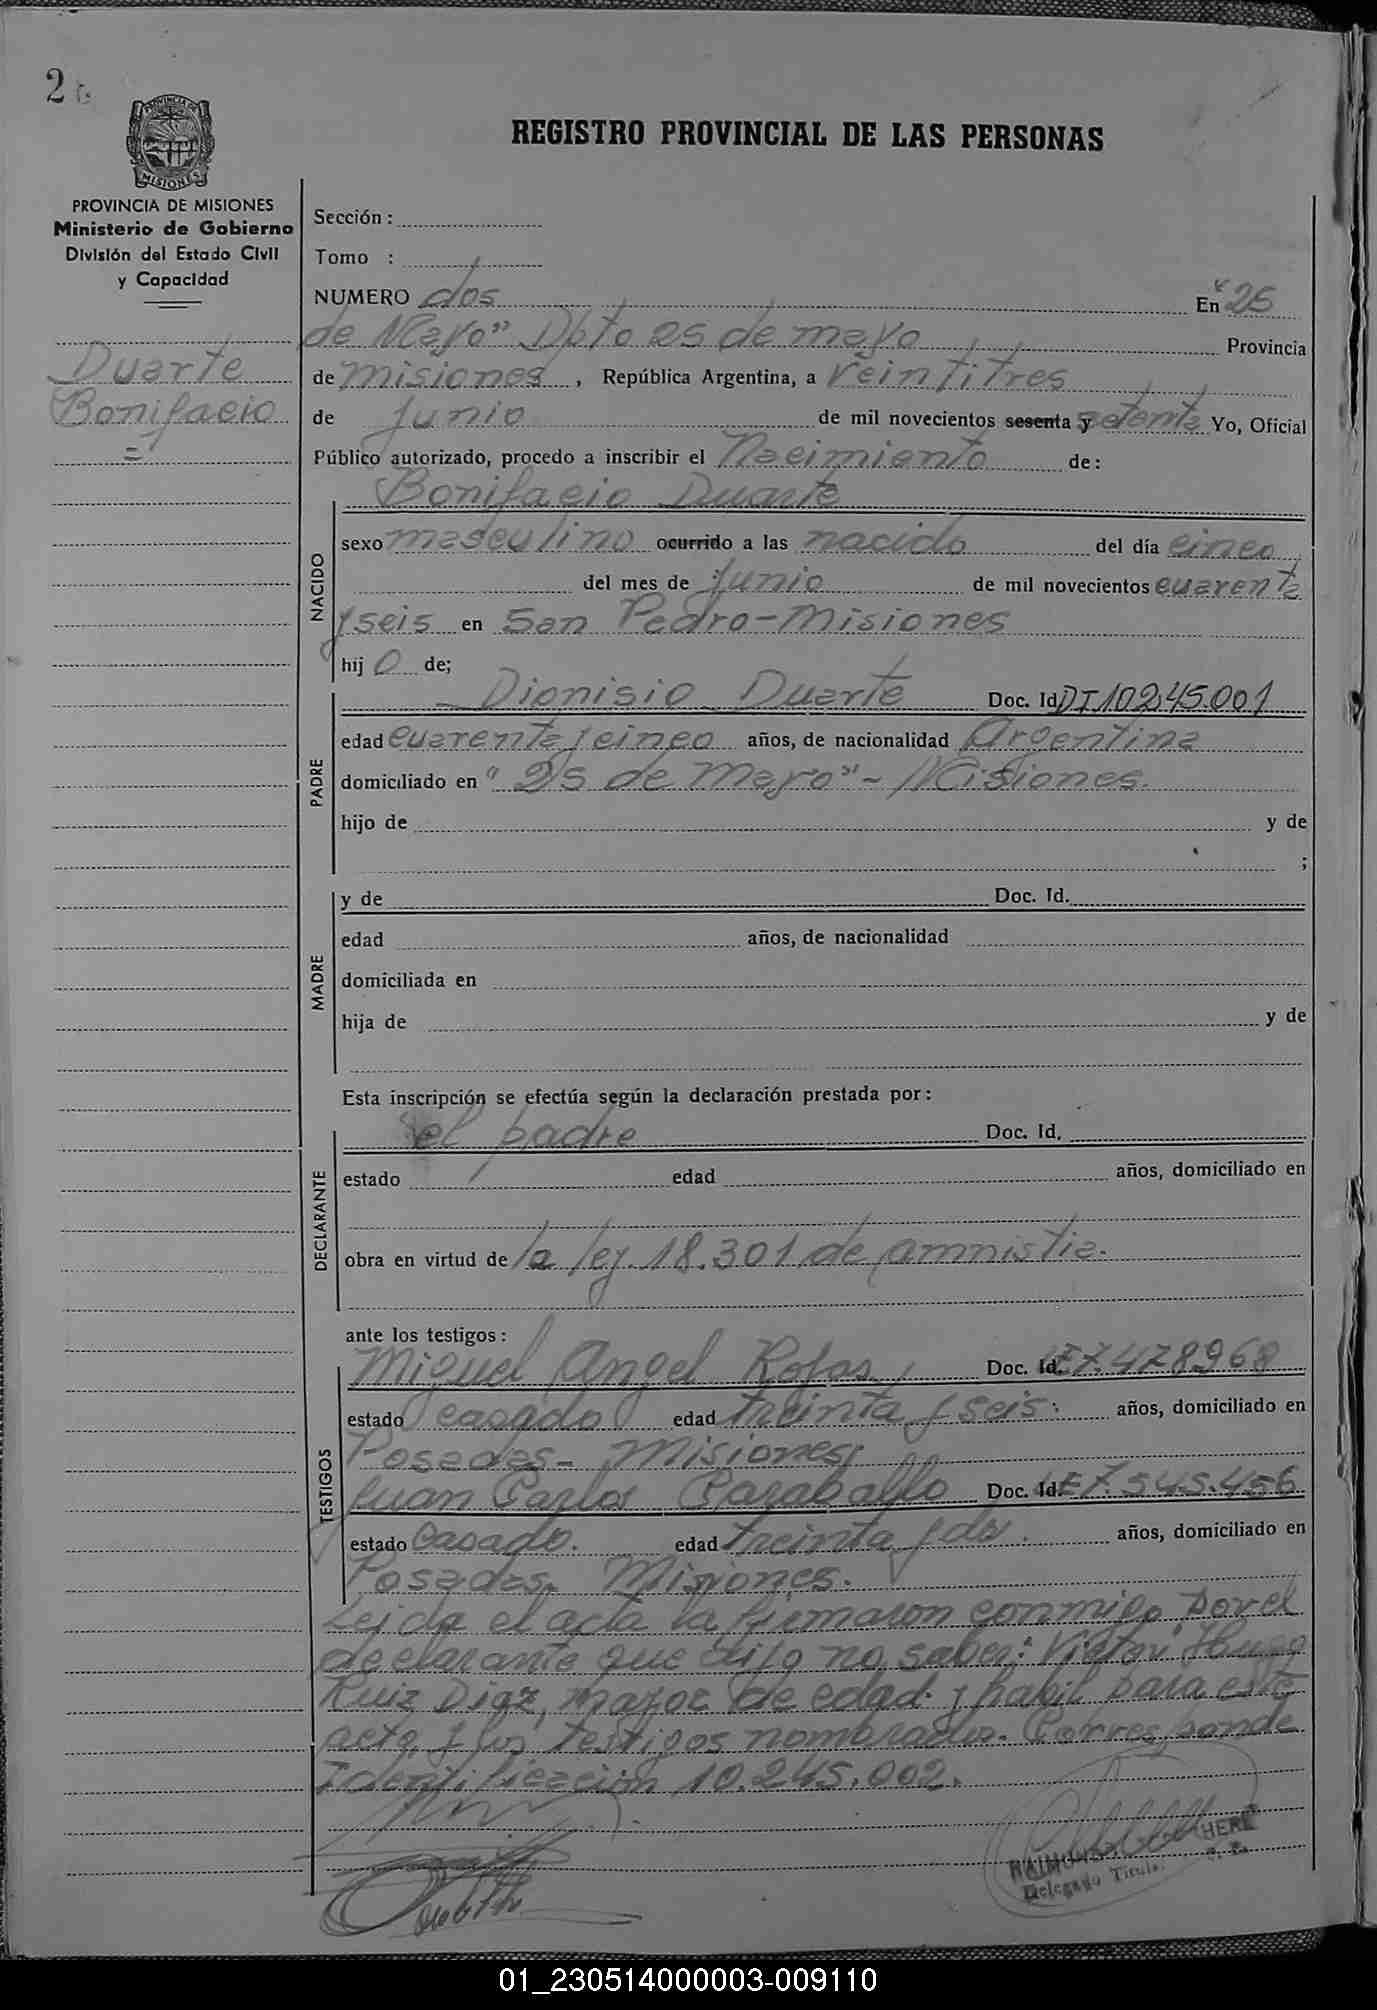 2
REGISTRO PROVINCIAL DE LAS PERSONAS
PROVINCIA DE MISIONES
Ministerio de Gobierno
División del Estado Civil
y Capacidad
Duarte
Bonifacio
Sección :
Tomo :
NUMERO dos En "25
de Mayo" Dpto 25 de mayo Provincia
de misiones , República Argentina, a veintitres
de junio de mil novecientos sesenta y setenta Yo, Oficial
Público autorizado, procedo a inscribir el Nacimiento de:
Bonifacio Duarte
NACIDO
sexo masculino ocurrido a las nacido del día cinco
del mes de junio de mil novecientos cuarenta
y seis en San Pedro - Misiones
hij o de;
PADRE
Dionisio Duarte Doc. Id DI 10245.001
edad cuarenta y cinco años, de nacionalidad Argentina
domiciliado en "25 de Mayo" - Misiones.
hijo de y de
;
MADRE
y de Doc. Id.
edad años, de nacionalidad
domiciliada en
hija de y de
Esta inscripción se efectúa según la declaración prestada por:
DECLARANTE
el padre Doc. Id.
estado edad años, domiciliado en
obra en virtud de la ley 18.301 de amnistia.
ante los testigos:
TESTIGOS
Miguel Angel Rojas Doc. Id. LE 7.478968
estado casado edad treinta y seis años, domiciliado en
Posadas - Misiones
Juan Carlos Caraballo Doc. Id LE 7.545.456
estado casado. edad treinta y dos. años, domiciliado en
Posadas. Misiones.
Leida el acta la firmaron conmigo por el
declarante que dijo no saber: Victor Hugo
Ruiz Diaz, mayor de edad y habil para este
acto y los testigos nombrados. Corresponde
Identificación 10.245.002.
Delegado Titular
01_230514000003-009110